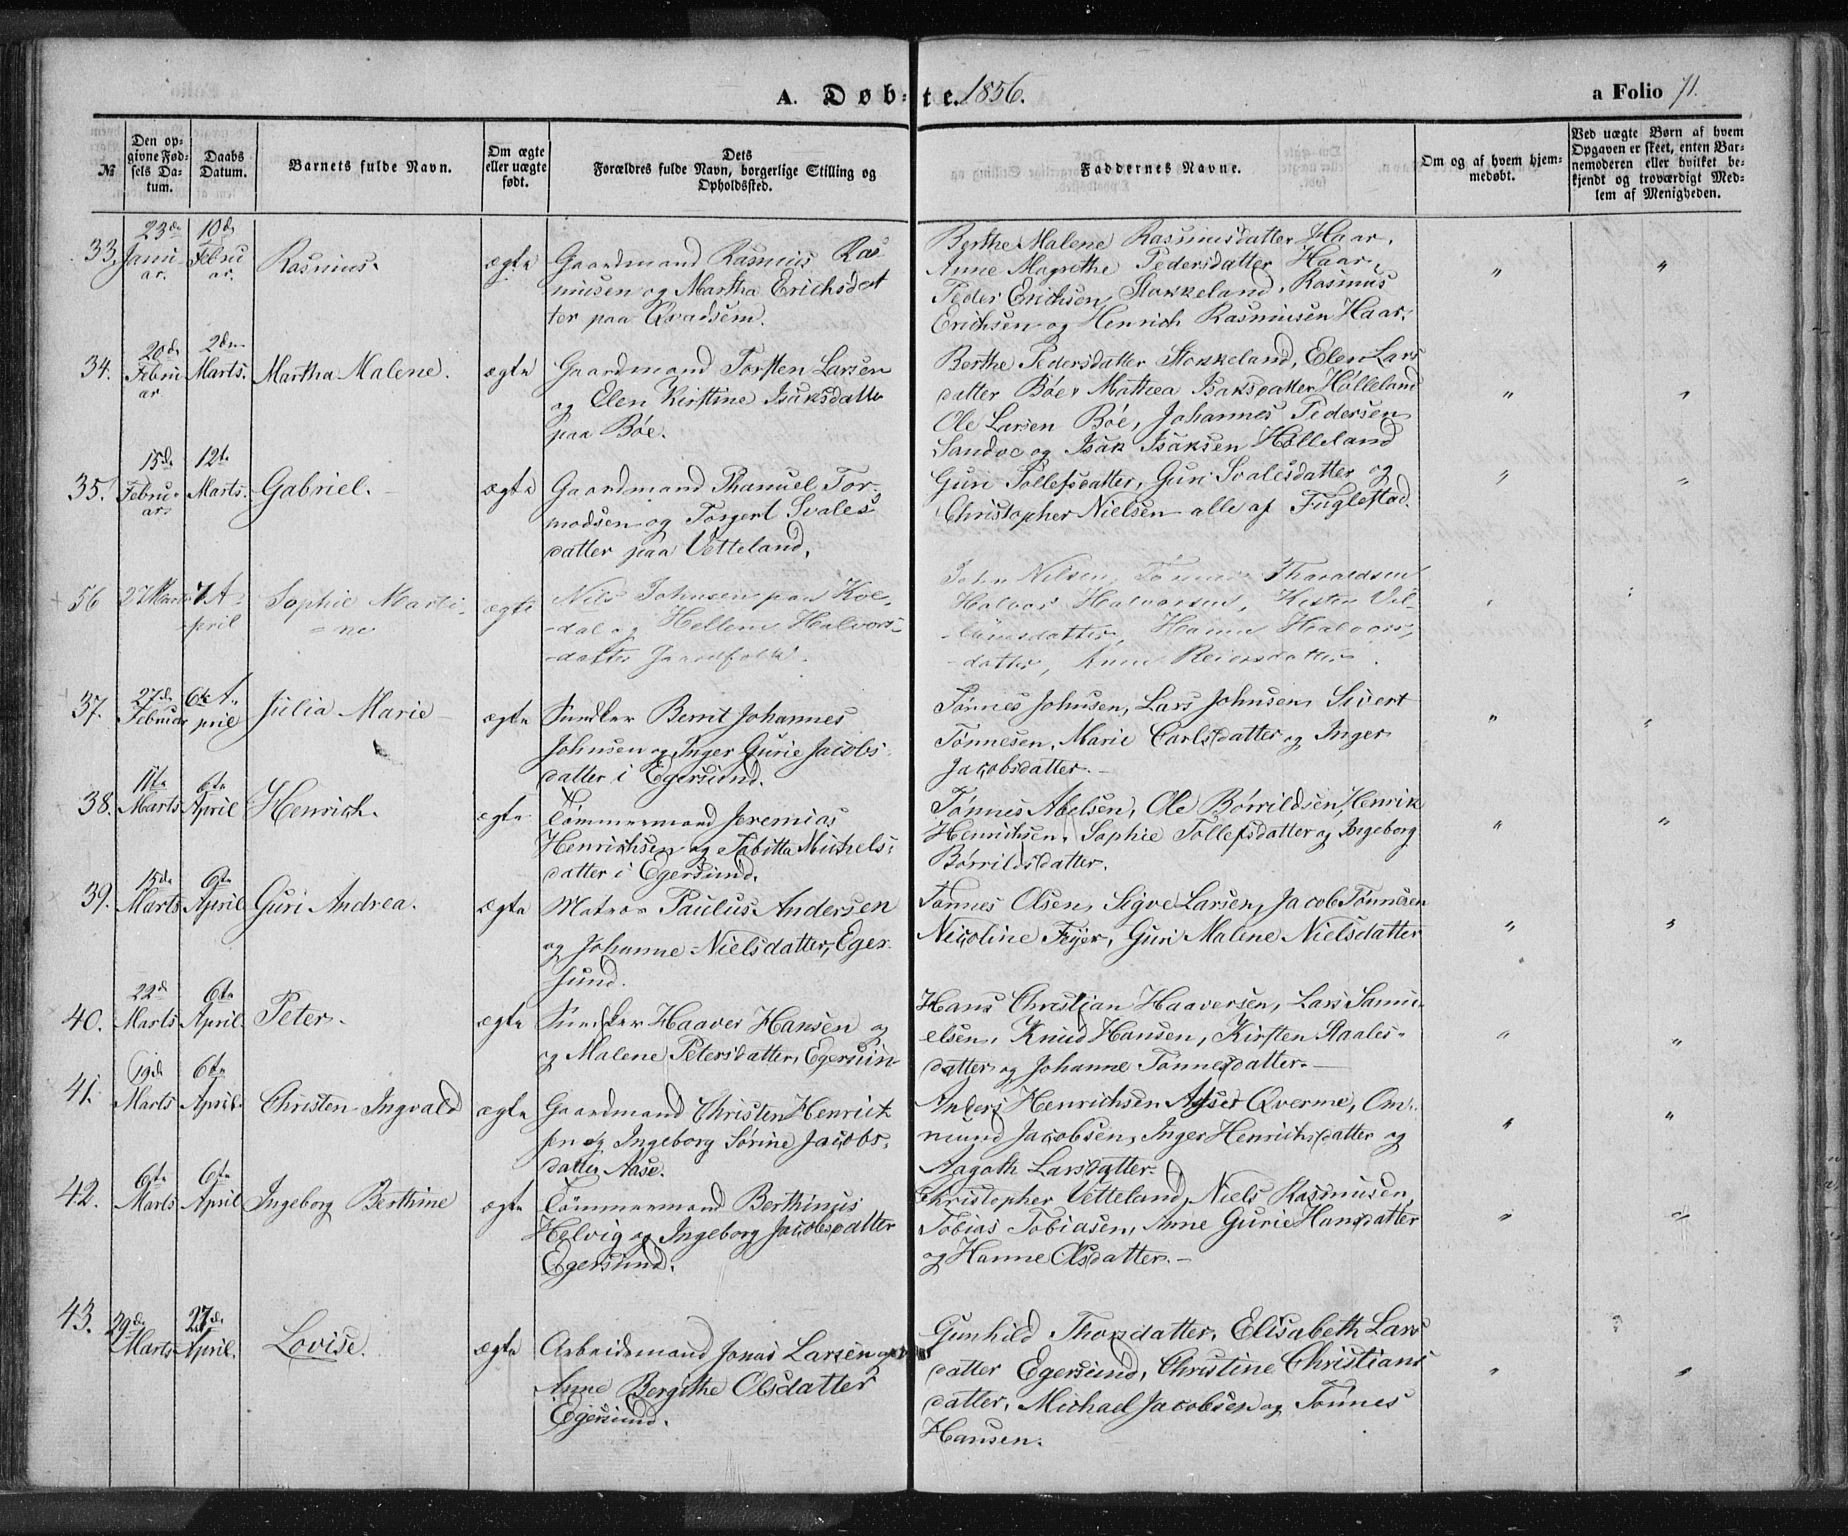 A. Døb-te. 1856.
a Folio 71.
№
Den opgivne Fødsels Datum.
Daabs Datum.
Barnets fulde Navn.
Om ægte eller uægte født.
Dets Forældres fulde Navn, borgerlige Stilling og Opholdssted.
Faddernes Navne.
Om og af hvem hjemmedøbt.
Ved uægte Børn af hvem Opgaven er skeet, enten Barnemoderen eller hvilket bekjendt og troværdigt Medlem af Menigheden.
33. 23de Januar. 10de Februar. Rasmus. ægte
Gaardmand Rasmus Ras
musen og Martha Erichsdat
ter paa Qvadsem.
Berthe Malene Rasmusdatter Haar,
Anne Magrethe Pedersdatter Haar,
Peder Erichsen, Stokkeland, Rasmus
Erichsen og Henrich Rasmusen Haar.
34. 20de Februar 2den Marts. Martha Malene. ægte
Gaardmand Torsten Larsen
og Elen Kirstine Isaksdatte
paa Bøe.
Berthe Pedersdatter Stokkeland, Elen Lars
datter Bøe, Mathea Isaksdatter Hølleland
Ole Larsen Bøe, Johannes Pedersen
Sandve og Isak Isaksen Hølleland
35. 15de Februar 12te Marts. Gabriel. ægte
Gaardmand Phanuel Tor-
modsen og Torgert Svales
datter paa Vetteland,
Guri Tollefsdatter, Guri Svalesdatter og
Christopher Nielsen alle af Fuglestad.
56 27 Marts 7 April Sophie Marti-
=ne ægte
Nils Johnsen paa Koe-
-dal og Hellene Halvors-
-datter Gaardfolk.
John Nilsen, Tønnes Tharaldsen
Halvor Halvorsen, Kisten Vil-
-lumsdatter, Hanne Halvors-
-datter, Anne Reiersdatter.
37. 27de Februar 6te April Julia Marie ægte
Sundler Berrit Johannes
Johnsen og Inger Gurie Jacobs
datter i Egersund.
Tønnes Johnsen, Lars Johnsen, Sivert
Tønnesen, Marie Carlsdatter og Inger
Jacobsdatter.
38. 11te Marts 6te April Henrich. ægte
Tømmermand Jeremias
Henrichsen og Tabitta Michels-
datter i Egersund.
Tønnes Abelsen, Ole Børrildsen, Henrik
Henrichsen, Sophie Tollefsdatter og Ingeborg
Børrildsdatter.
39. 15de Marts 6te April Guri Andrea. ægte
Matros Paulus Andersen
og Johanne Nielsdatter, Eger-
sund.
Tønnes Olsen, Sigve Larsen, Jacob Tønnesen
Nicoline Feyer, Guri Malene Nielsdatter
40. 22de Marts 6te April. Peter. ægte
Sundler Haaver Hansen og
og Malene Petersdatter, Egersun-
Hans Christian Haaversen, Lars Samu-
elsen, Knud Hansen, Kirsten Staales-
datter og Johanne Tønnesdatter.
41. 19de Marts 6te April. Christen Ingvald ægte
Gaardmand Christen Henrik
sen og Ingeborg Sørine Jacobs-
datter Aase.
Anders Henrichsen Asser Qverme, Om-
mund Jacobsen, Inger Henrichsdatter og
Aagoth Larsdatter.
42. 6te Marts 6te April Ingeborg Berthine ægte
Tømmermand Berthinius
Helvig og Ingeborg Jacobsdatter
Egersund.
Christopher Vetteland, Niels Rasmusen,
Tobias Tobiasen, Anne Gurie Hansdatter
og Hanne Olsdatter.
43. 29de Marts 27de April. Lovise. ægte
Arbeidsmand Jonas Larsen og
Anne Bergithe Olsdatter
Egersund.
Gunhild Thorsdatter, Elisabeth Lars
datter Egersund, Christine Christians
datter, Michael Jacobsen og Tønnes
Hansen.